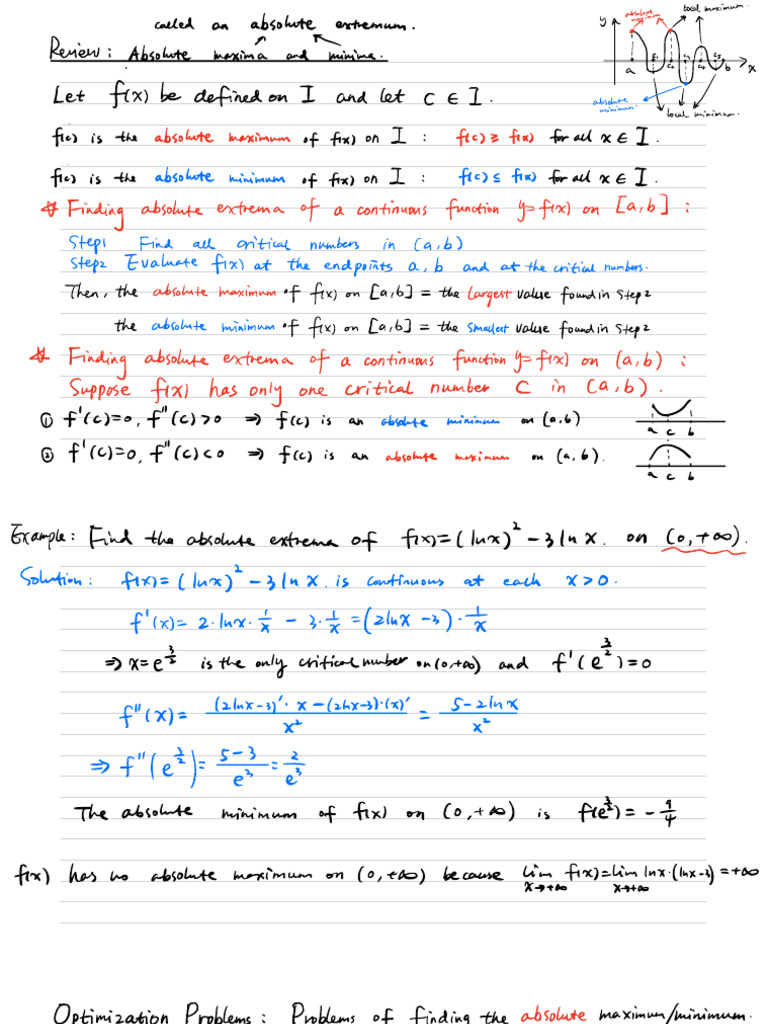 called an absolute extremum.
Review: Absolute maxima and minima.
y
absolute maximum
local maximum
a
c₁
c₂
c₃
c₄
c₅
b
x
absolute minimum
local minimum.
Let f(x) be defined on I and let c ∈ I.
f(c) is the absolute maximum of f(x) on I : f(c) ≥ f(x) for all x ∈ I.
f(c) is the absolute minimum of f(x) on I : f(c) ≤ f(x) for all x ∈ I.
☆ Finding absolute extrema of a continuous function y=f(x) on [a,b] :
Step1 Find all critical numbers in (a,b)
Step2 Evaluate f(x) at the endpoints a, b and at the critical numbers.
Then, the absolute maximum of f(x) on [a,b] = the largest value found in Step2
the absolute minimum of f(x) on [a,b] = the smallest value found in Step2
☆ Finding absolute extrema of a continuous function y=f(x) on (a,b) :
Suppose f(x) has only one critical number c in (a,b).
① f'(c)=0, f''(c)>0 ⇒ f(c) is an absolute minimum on (a,b)
a c b
② f'(c)=0, f''(c)<0 ⇒ f(c) is an absolute maximum on (a,b).
a c b
Example: Find the absolute extrema of f(x)=(lnx)² - 3lnx. on (0,+∞).
Solution: f(x)=(lnx)² - 3lnx. is continuous at each x>0.
f'(x)= 2·lnx·1/x - 3·1/x = (2lnx-3)·1/x
⇒ x=e^(3/2) is the only critical number on (0,+∞) and f'(e^(3/2))=0
f''(x)= ((2lnx-3)'·x-(2lnx-3)·(x)')/x² = (5-2lnx)/x²
⇒ f''(e^(3/2)) = (5-3)/e³ = 2/e³
The absolute minimum of f(x) on (0,+∞) is f(e^(3/2)) = -9/4
f(x) has no absolute maximum on (0,+∞) because lim x→+∞ f(x)=lim x→+∞ lnx·(lnx-3)=+∞
Optimization Problems: Problems of finding the absolute maximum/minimum.